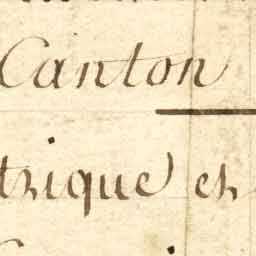 Canton
trique en